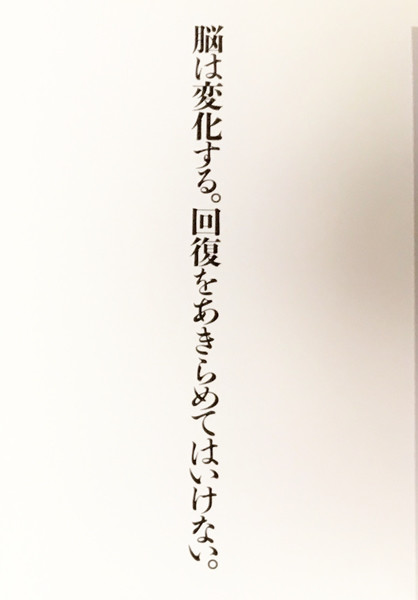 脳は変化する。回復をあきらめてはいけない。